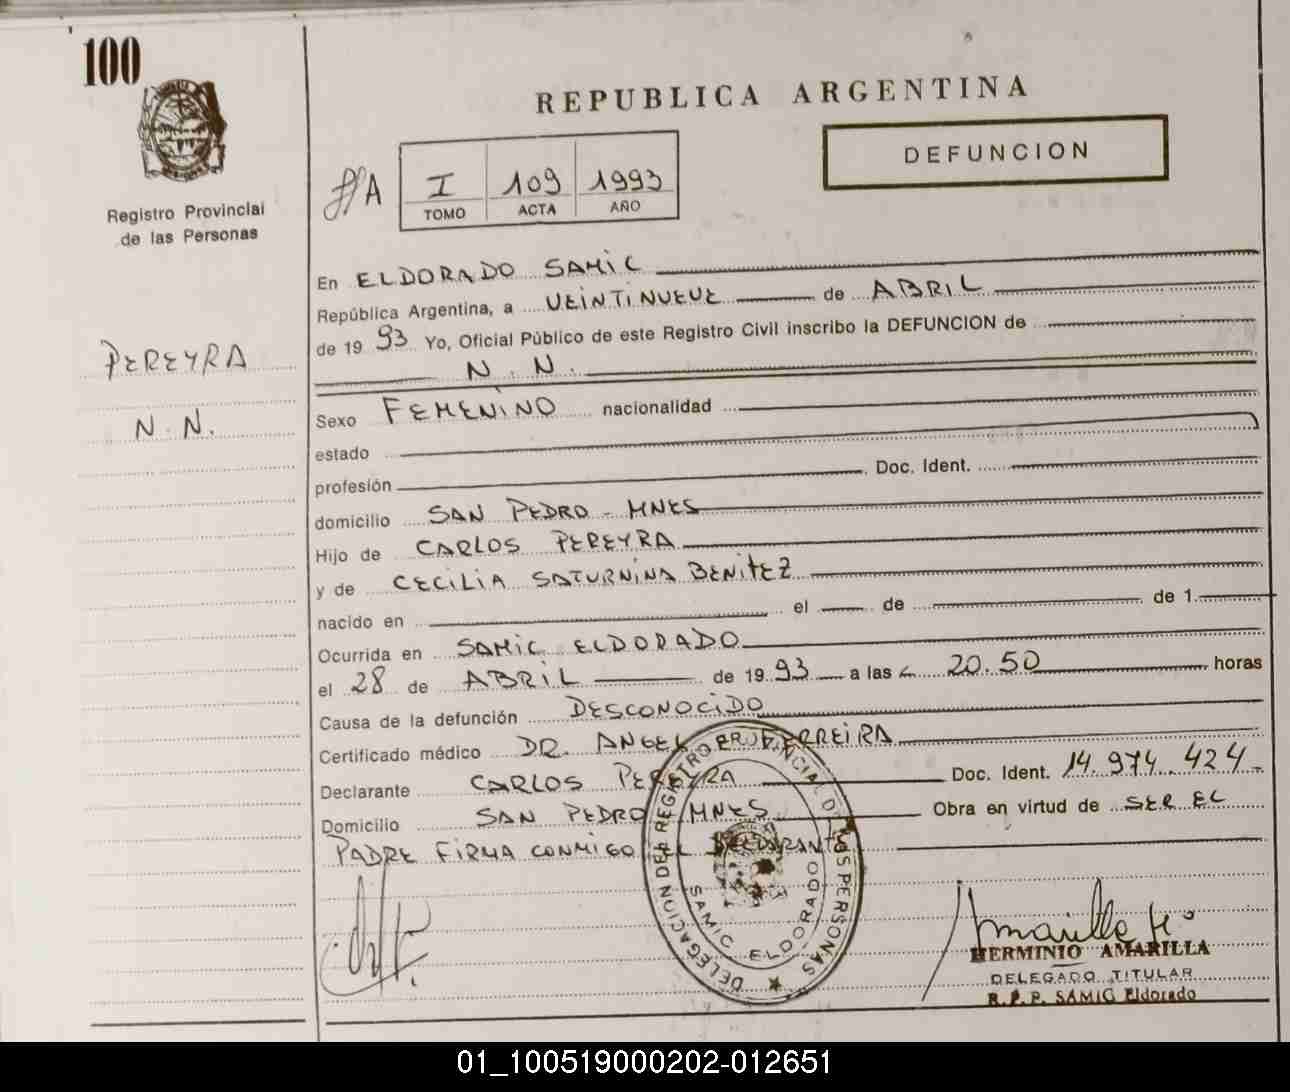 100
Registro Provincial
de las Personas
PEREYRA
N. N.
REPUBLICA ARGENTINA
DEFUNCION
I 109 1993
TOMO ACTA AÑO
En ELDORADO SAMIC
República Argentina, a VEINTINUEVE de ABRIL
de 19 93 Yo, Oficial Público de este Registro Civil inscribo la DEFUNCION de
N. N.
Sexo FEMENINO nacionalidad
estado
profesión Doc. Ident.
domicilio SAN PEDRO - MNES
Hijo de CARLOS PEREYRA
y de CECILIA SATURNINA BENITEZ
nacido en el de de 1
Ocurrida en SAMIC ELDORADO
el 28 de ABRIL de 19 93 a las 20.50 horas
Causa de la defunción DESCONOCIDO
Certificado médico DR. ANGEL FERREIRA
Declarante CARLOS PEREYRA Doc. Ident. 14.974.424
Domicilio SAN PEDRO MNES Obra en virtud de SER EL
PADRE FIRMA CONMIGO EL DECLARANTE
DELEGACION DEL REGISTRO PROVINCIAL DE LAS PERSONAS
SAMIC ELDORADO
Amarilla
HERMINIO AMARILLA
DELEGADO TITULAR
R. P. P. SAMIC Eldorado
01_100519000202-012651